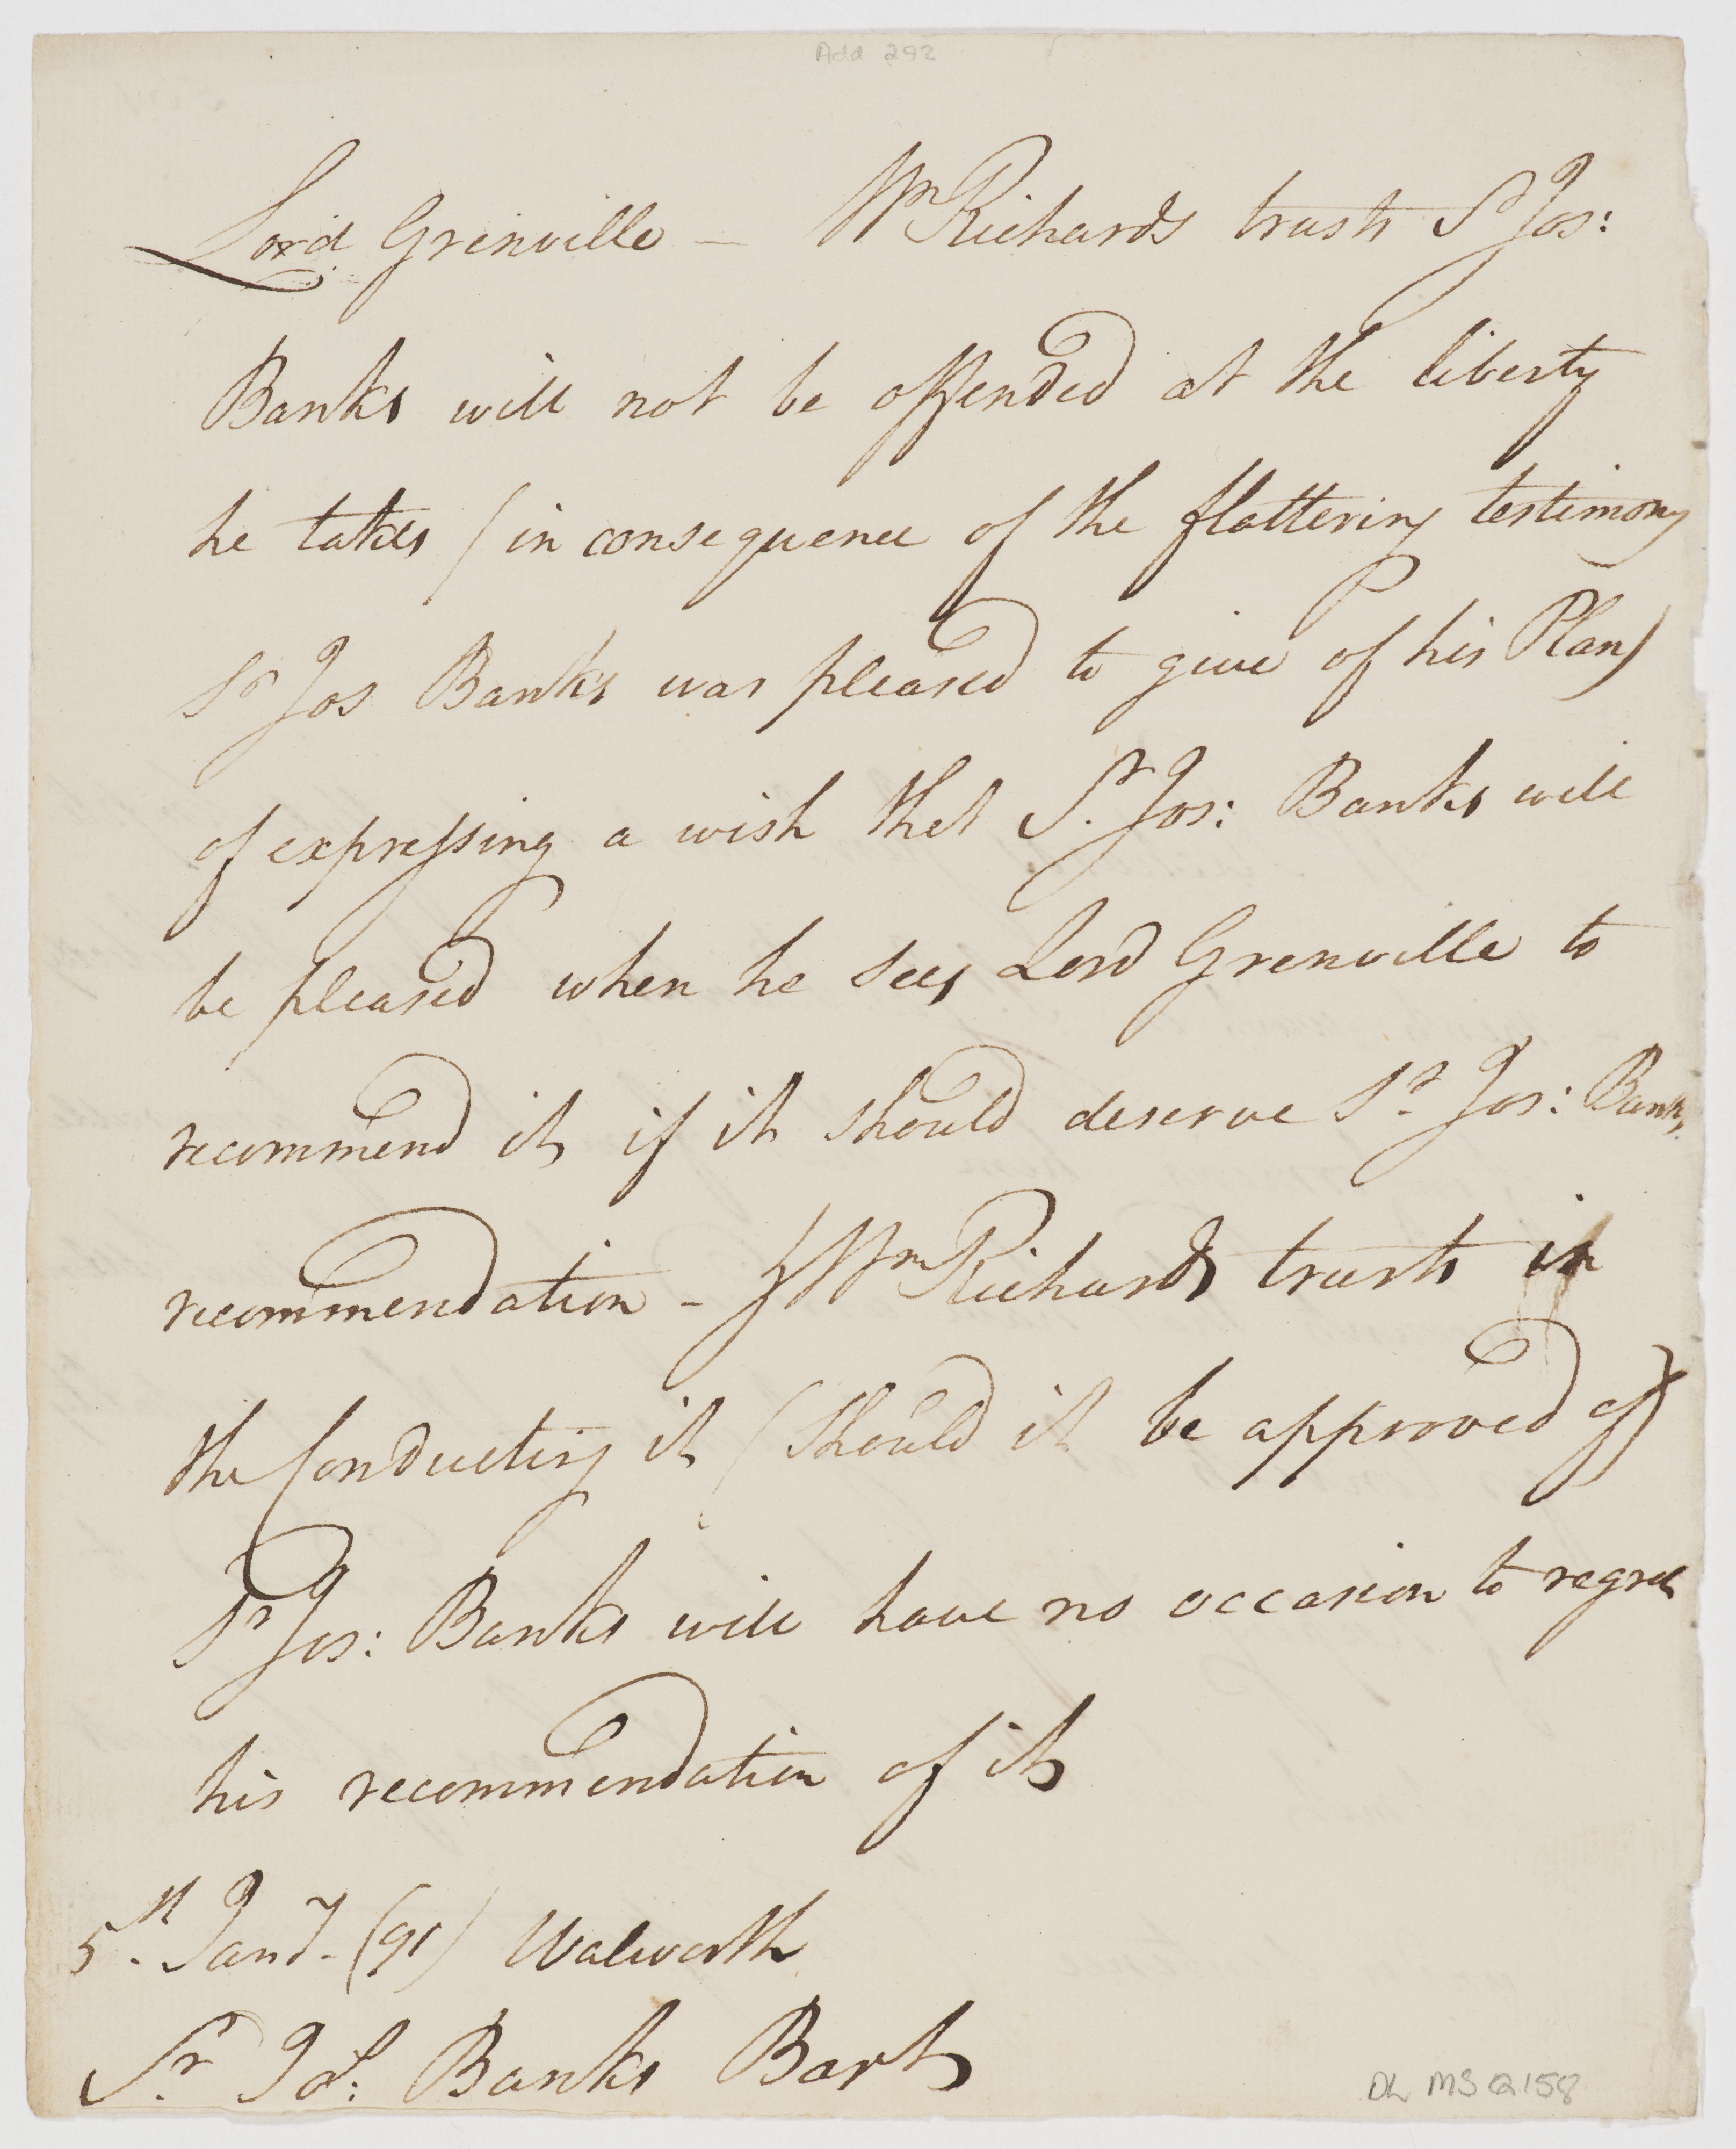 Add 292
Lord Grenville — Wm Richards trusts Sr Jos:
Banks will not be offended at the liberty
he takes (in consequence of the flattering testimony
Sr Jos Banks was pleased to give of his Plan)
of expressing a wish that Sr. Jos: Banks will
be pleased when he sees Lord Grenville to
recommend it if it should deserve Sr. Jos: Banks.
recommendation - & Wm Richards trusts in
the Conducting it (should it be approved of)
Sr Jos: Banks will have no occasion to regret
his recommendation of it
5th. Jany. (91) Walworth
Sr. Jos: Banks Bart
DL MSQ158